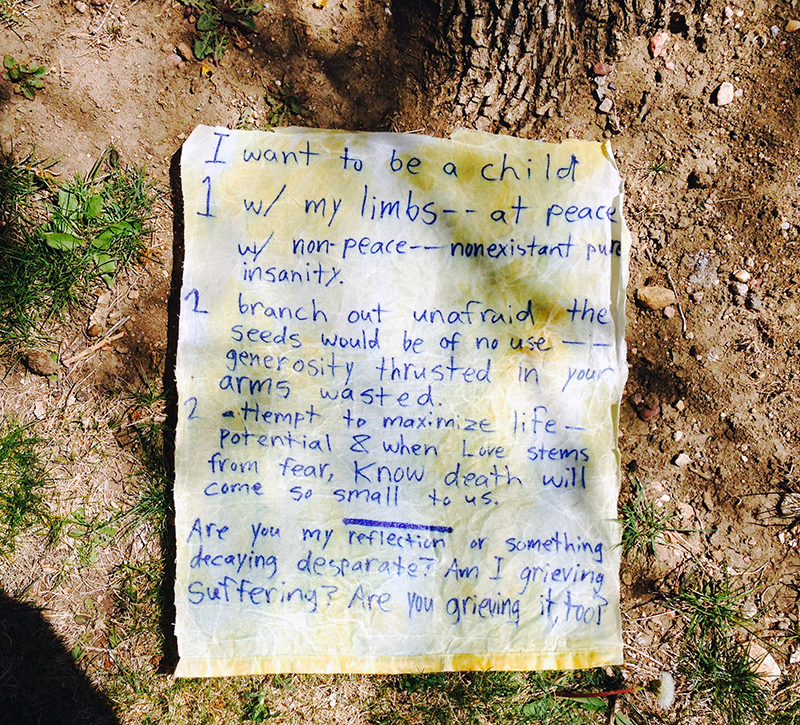 I want to be a child
1 w/ my limbs-- at peace
w/ non-peace-- nonexistant pure
insanity.
2 branch out unafraid the
seeds would be of no use --
generosity thrusted in your
arms wasted.
2 attempt to maximize life-
potential & when Love stems
from fear, Know death will
come so small to us.
Are you my reflection or something
decaying desparate? Am I grieving
suffering? Are you grieving it, too?